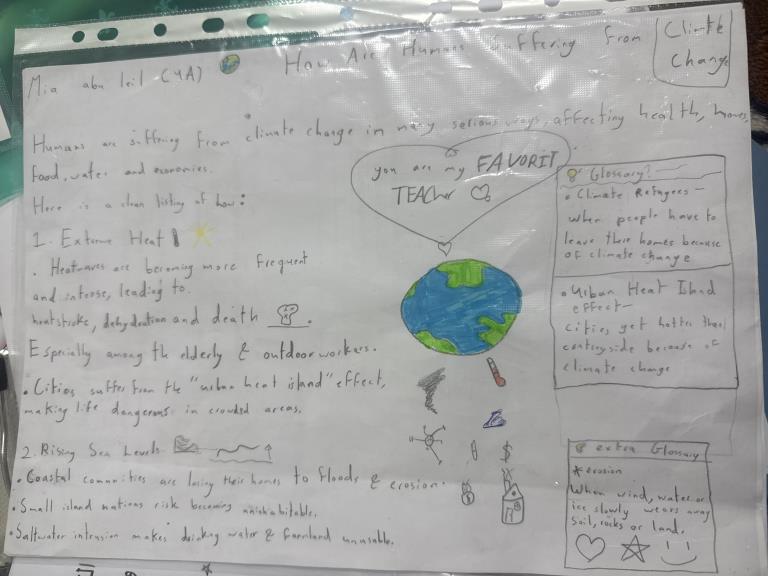 Mia abu leil (4A)
How Are Humans Suffering from Climate Change
Humans are suffering from climate change in many serious ways, affecting health, homes,
food, water and economies.
Here is a clean listing of how:
1. Extreme Heat
• Heatwaves are becoming more frequent
and intense, leading to
heatstroke, dehydration and death
Especially among the elderly & outdoor workers.
• Cities suffer from the "urban heat island" effect,
making life dangerous in crowded areas.
2. Rising Sea Levels
• Coastal communities are losing their homes to floods & erosion.
• Small island nations risk becoming uninhabitable.
• Saltwater intrusion makes drinking water & farmland unusable.
you are my FAVORIT
TEACher
$
Glossary?
• Climate Refugees –
when people have to
leave there homes because
of climate change
• Urban Heat Island
effect –
cities get hotter than
countryside because of
climate change
extra Glossary
* erosion
When wind, water or
ice slowly wears away
soil, rocks or land.